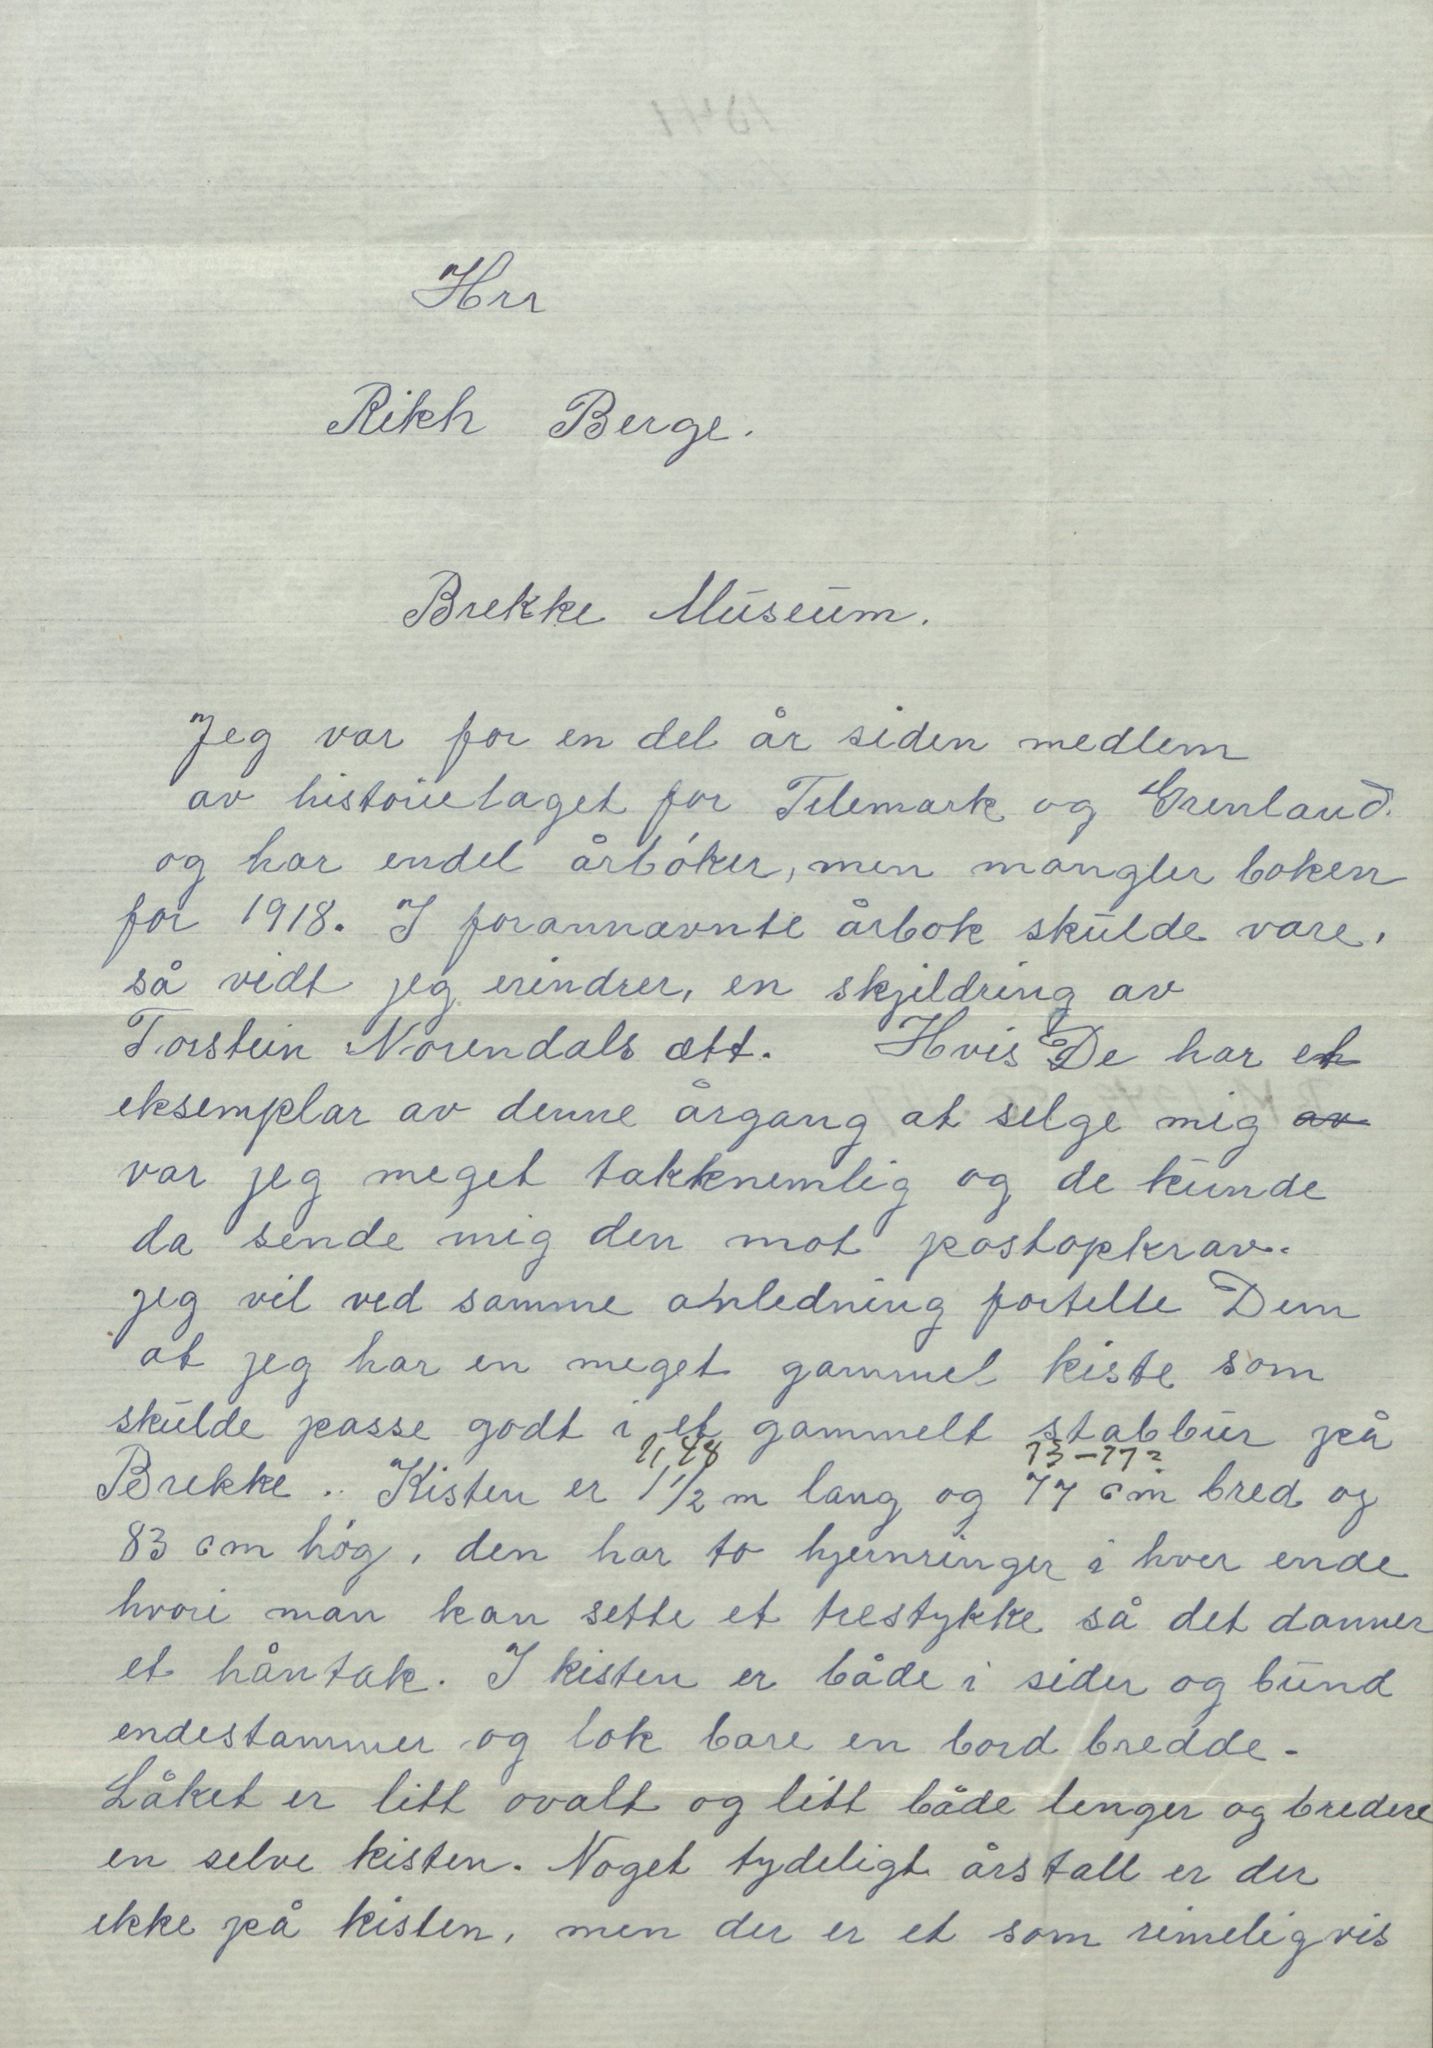 Hrr
Rikh Berge.
Brekke Museum.
Jeg var for en del år siden medlem
av historielaget for Telemark og Grenland.
og har endel årbóker, men mangler boken
for 1918. I forannævnte årbok skulde være,
så vidt jeg erindrer, en skjildring av
Torstein Norendals ætt. Hvis De har et
eksemplar av denne årgang at selge mig av
var jeg meget takknemlig og de kunde
da sende mig den mot postopkrav.
jeg vil ved samme anledning fortelle Dem
at jeg har en meget gammel kiste som
skulde passe godt i et gammelt stabbur på
1,48 73-77
Brekke. Kisten er 1 1/2 m lang og 77 cm bred og
83 cm hóg, den har to hjernringer i hver ende
hvori man kan sette et trestykke så det danner
et håntak. I kisten er både i sider og bund
endestammer og lok bare en bord bredde.
Låket er litt ovalt og litt både lenger og bredere
en selve kisten. Noget tydeligt årstall er der
ikke på kisten, men der er et som rimeligvis